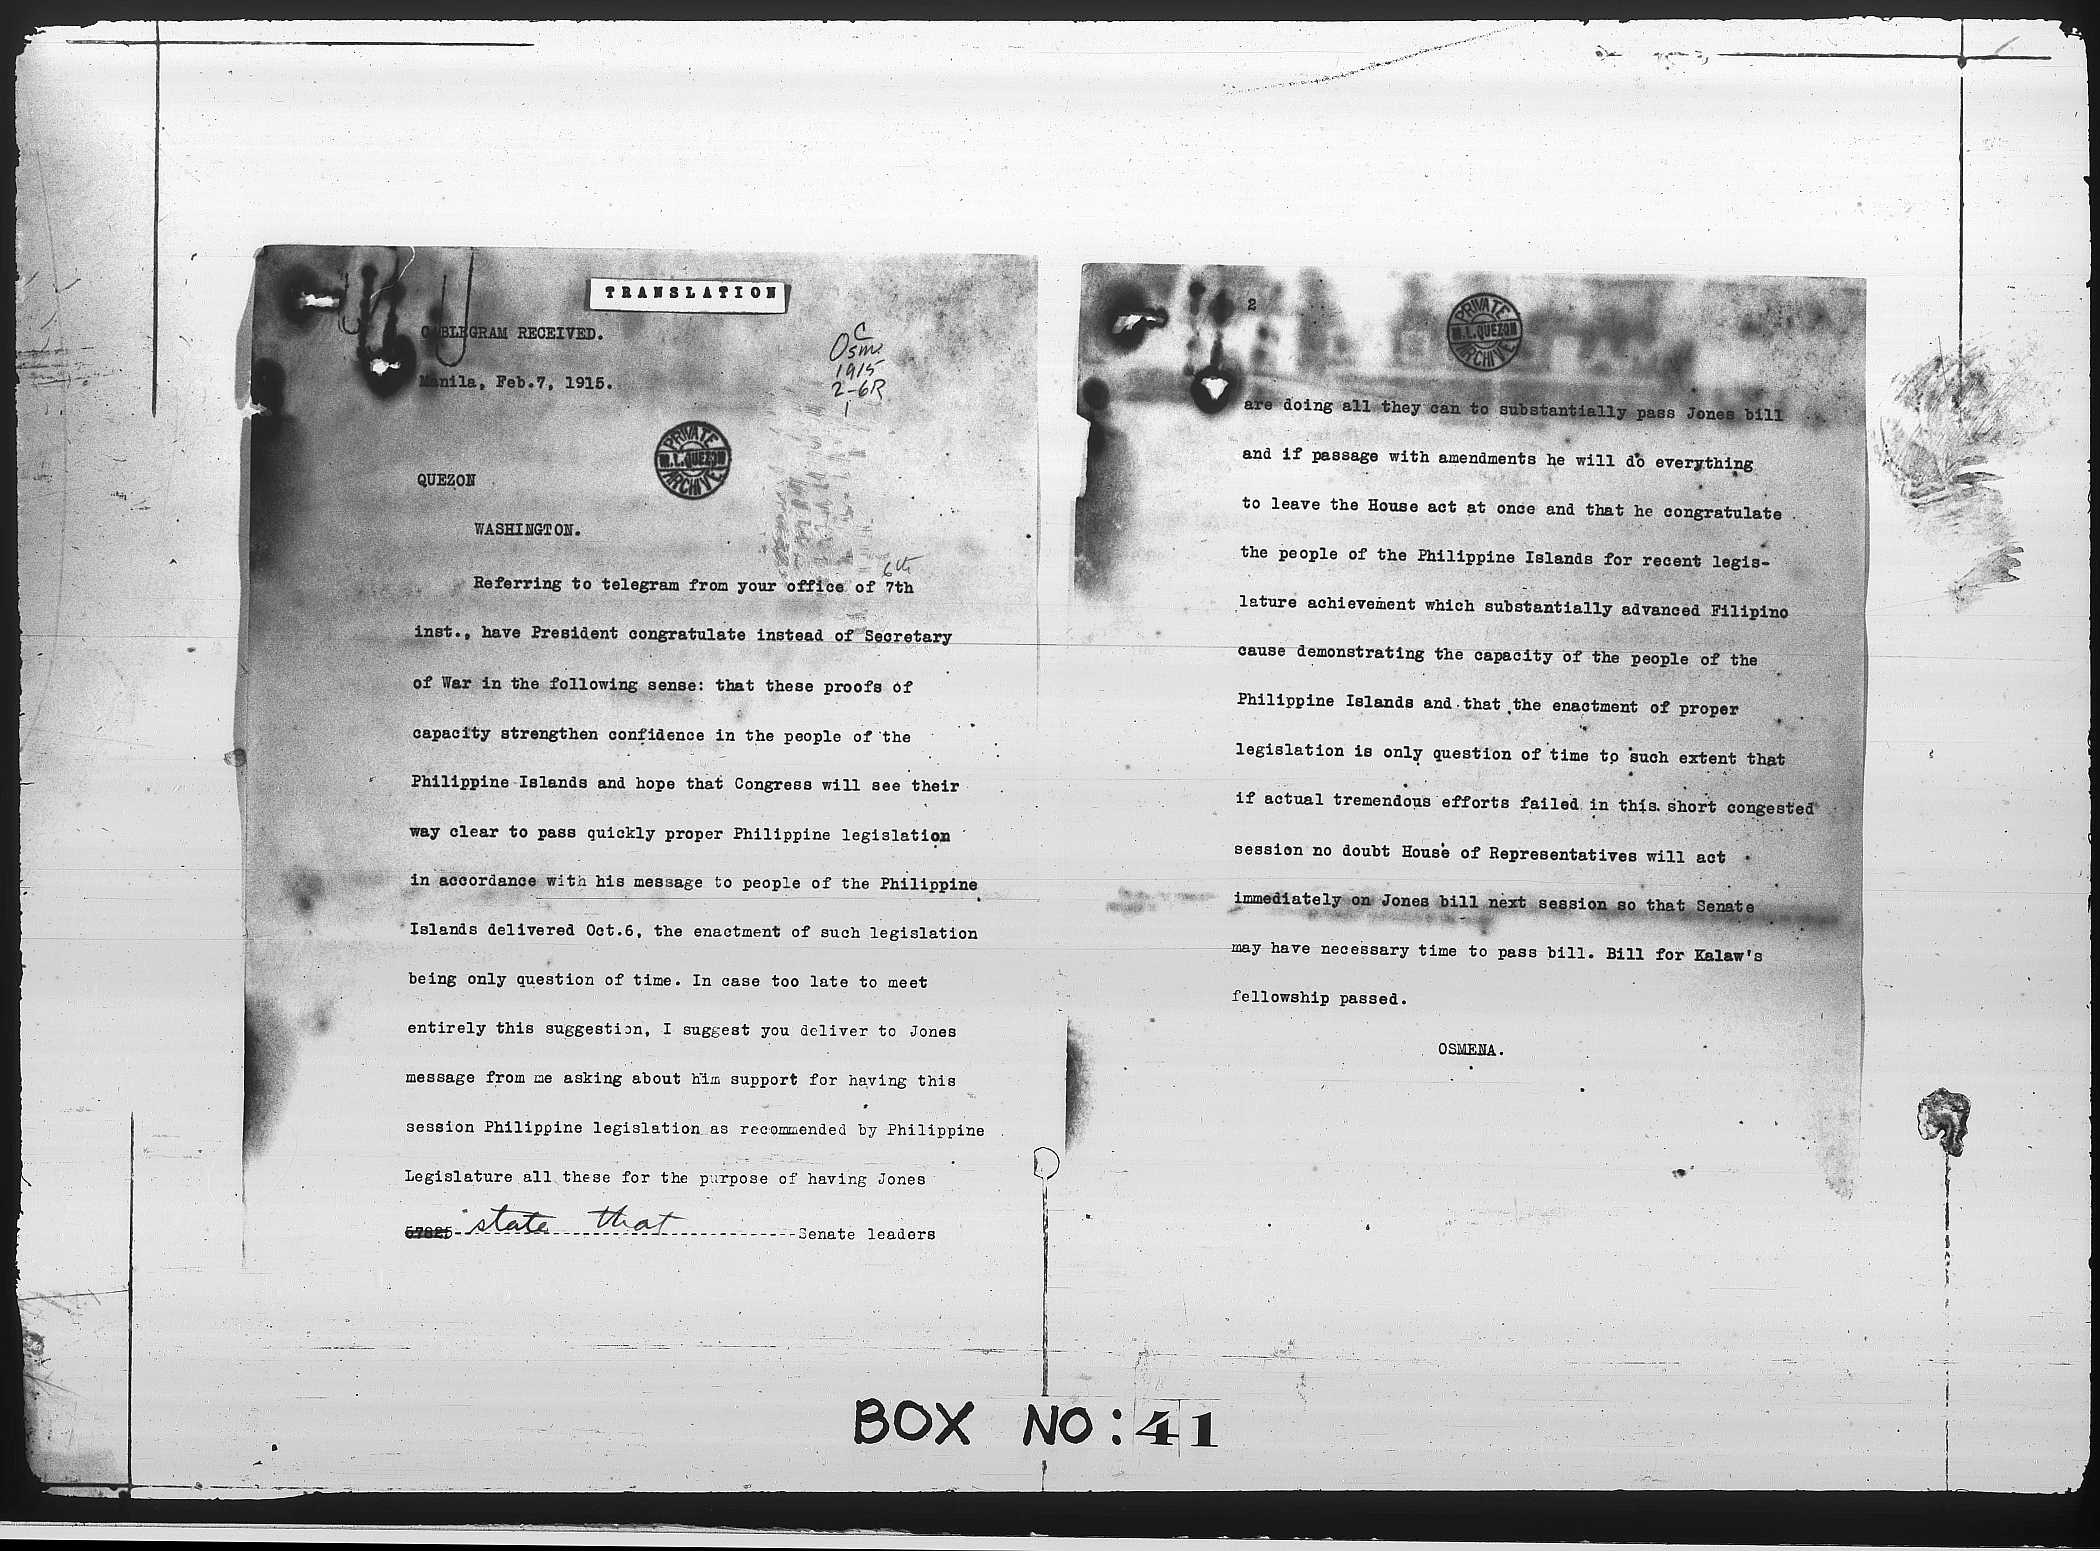 TRANSLATION
CABLEGRAM RECEIVED.
C
Osm.
1915
2-6R
1
Manila, Feb.7, 1915.
PRIVATE
M.L.QUEZON
ARCHIVE
QUEZON
WASHINGTON.
6th
Referring to telegram from your office of 7th
inst., have President congratulate instead of Secretary
of War in the following sense: that these proofs of
capacity strengthen confidence in the people of the
Philippine Islands and hope that Congress will see their
way clear to pass quickly proper Philippine legislation
in accordance with his message to people of the Philippine
Islands delivered Oct.6, the enactment of such legislation
being only question of time. In case too late to meet
entirely this suggestion, I suggest you deliver to Jones
message from me asking about him support for having this
session Philippine legislation as recommended by Philippine
Legislature all these for the purpose of having Jones
57825 state that Senate leaders
2
PRIVATE
M.L.QUEZON
ARCHIVE
are doing all they can to substantially pass Jones bill
and if passage with amendments he will do everything
to leave the House act at once and that he congratulate
the people of the Philippine Islands for recent legis-
lature achievement which substantially advanced Filipino
cause demonstrating the capacity of the people of the
Philippine Islands and that the enactment of proper
legislation is only question of time to such extent that
if actual tremendous efforts failed in this short congested
session no doubt House of Representatives will act
immediately on Jones bill next session so that Senate
may have necessary time to pass bill. Bill for Kalaw's
fellowship passed.
OSMENA.
BOX NO: 41